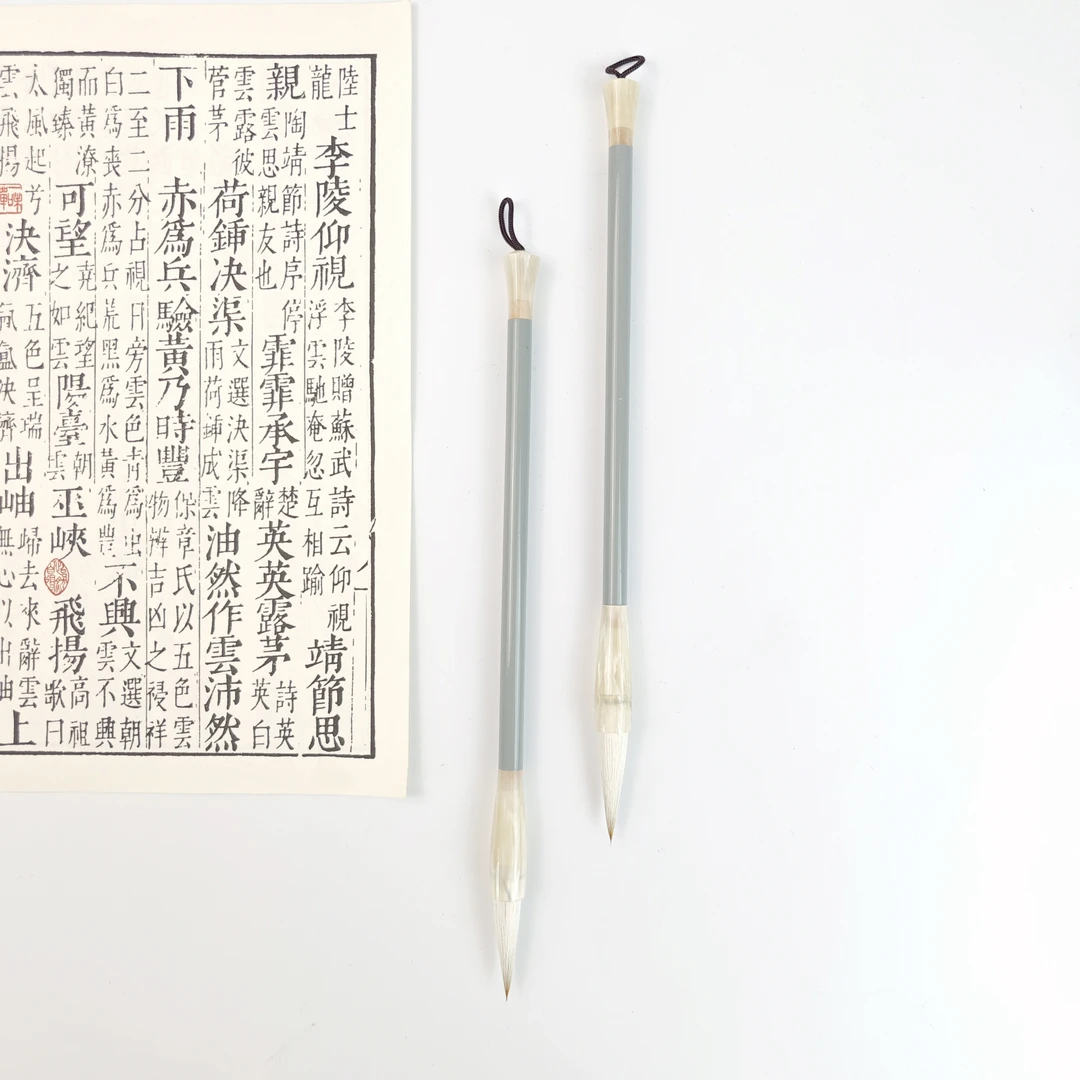 陸士龍李陵仰視李陵贈蘇武詩云仰視浮雲馳奄忽互相踰靖節思
親陶靖節詩序停雲思親友也霏霏承宇楚辭英英露茅詩英英白
雲露彼菅茅荷鍤決渠文選決渠降雨荷鍤成雲油然作雲沛然
下雨赤爲兵驗黃乃時豐保章氏以五色雲物辨吉凶之祲祥
二至二分占視日旁雲色青爲虫白爲喪赤爲兵荒黑爲水黃爲豐不興文選朝雲不興
而黃潦獨臻可望堯紀望之如雲陽臺朝雲巫峽飛揚高祖歌曰
太風起兮雲飛揚決濟五色呈瑞決濟出岫歸去來辭雲無心以出岫上